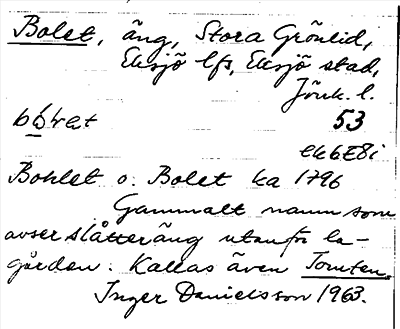 Bolet, äng, Stora Grönlid,
Eksjö lfs, Eksjö stad,
Jönk. l.
53
ek6E8i
Bohlet o. Bolet ka 1796
Gammalt namn som
avser slåtteräng utanför la-
gården. Kallas även Tomten.
Inger Danielsson 1963.